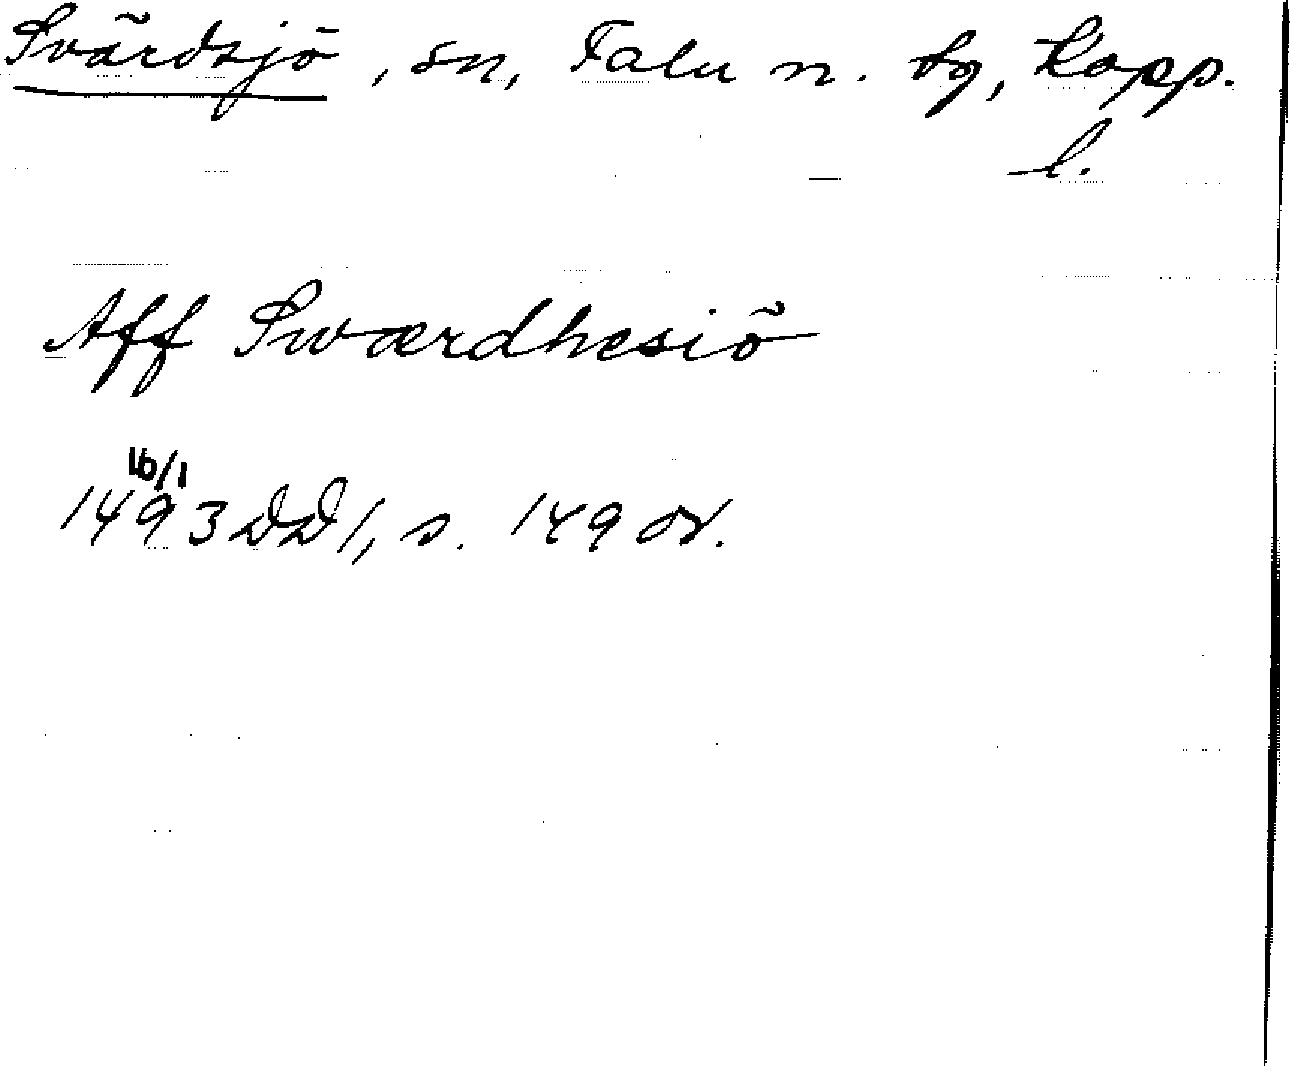 Svärdsjö, sn, Falu n. tg, Kopp.
l.
Aff Swærdhesiö
16/1
1493 DD 1, s. 149 or.